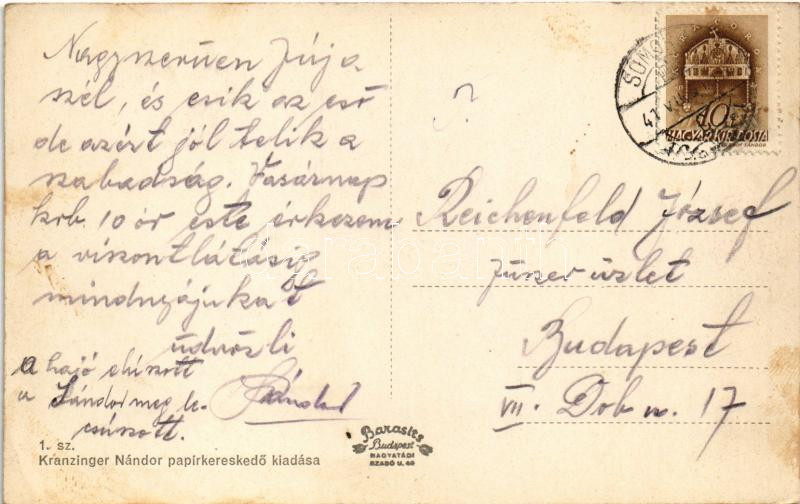 Nagyszerűen fúj a
szél, és esik az eső
de azért jól telik a
szabadság. Vasárnap
krb. 10 ór este érkezem.
a viszontlátásig
mindnyájukat
üdvözli
Sándor
a hajó elúszott
a Sándor meg le-
csúszott.
1. sz.
Kranzinger Nándor papírkereskedő kiadása
Barasits
Budapest
NAGYATÁDI
SZABÓ U. 40
SOM
41 VII
10
MAGYAR KIR. POSTA
Reichenfeld József
fűszerüzlet
Budapest
VII. Dob u. 17